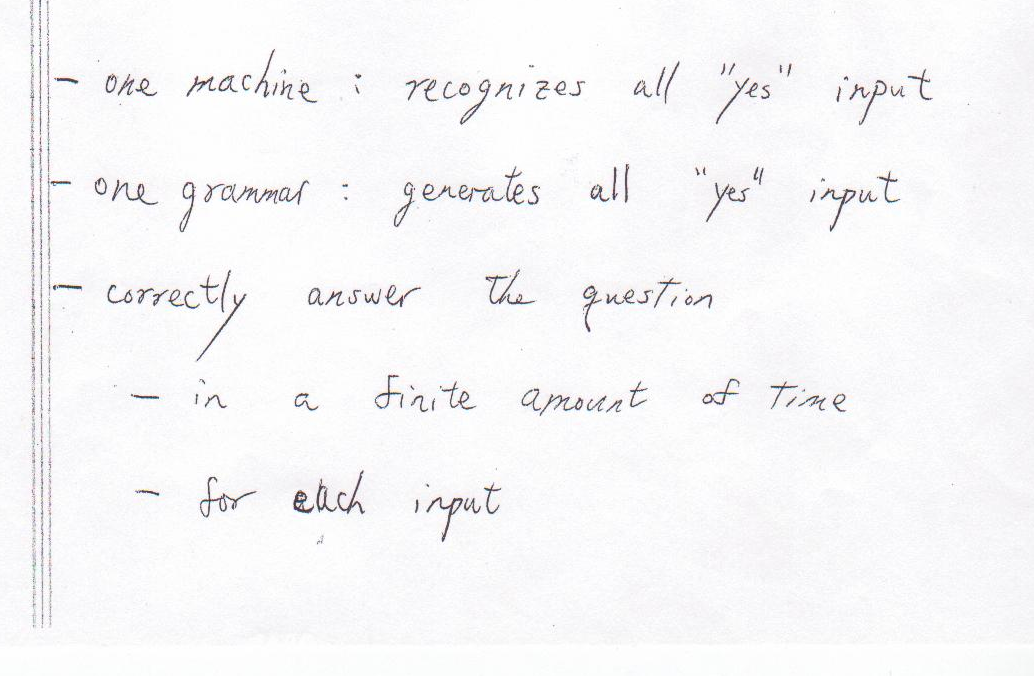 - one machine : recognizes all "yes" input
- one grammar : generates all "yes" input
- correctly answer the question
- in a finite amount of time
- for each input